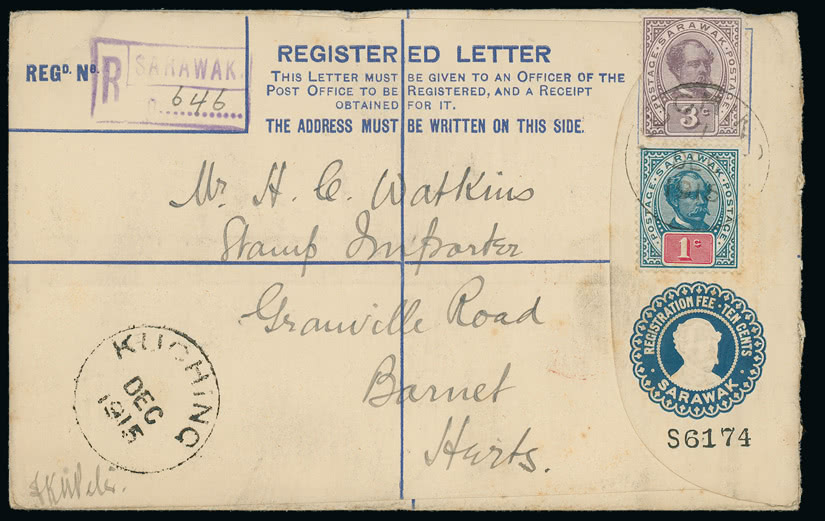 REGᴰ. Nº.
R SARAWAK.
n. 646
REGISTERED LETTER
THIS LETTER MUST BE GIVEN TO AN OFFICER OF THE
POST OFFICE TO BE REGISTERED, AND A RECEIPT
OBTAINED FOR IT.
THE ADDRESS MUST BE WRITTEN ON THIS SIDE.
POSTAGE · SARAWAK · POSTAGE
3 c
POSTAGE · SARAWAK · POSTAGE
1 c
Mr. H. C. Watkins
Stamp Importer
Granville Road
Barnet
Herts.
REGISTRATION FEE · TEN CENTS
SARAWAK
S6174
KUCHING
DEC
1915